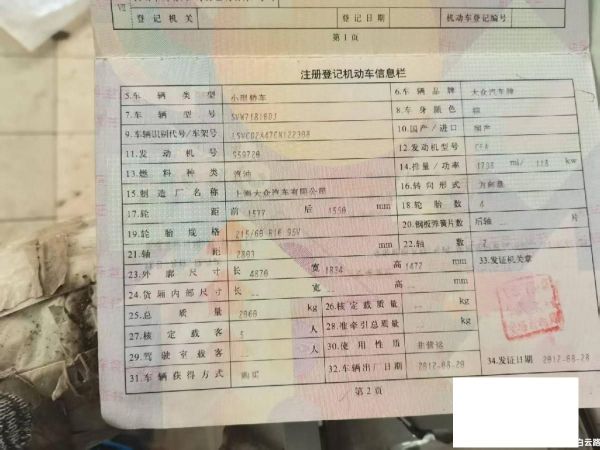 登记机关 登记日期 机动车登记编号
第1页
注册登记机动车信息栏
5.车辆类型 小型轿车 6.车辆品牌 大众汽车牌
7.车辆型号 8.车身颜色
9.车辆识别代号/车架号 10.国产/进口 国产
11.发动机号 S59720 12.发动机型号 CEA
13.燃料种类 汽油 14.排量/功率 1798 ml/ 118 kw
15.制造厂名称 上海大众汽车有限公司 16.转向形式 方向盘
17.轮距 前 1577 后 1550 mm 18.轮胎数 4
19.轮胎规格 215/60 R16 95V 20.钢板弹簧片数 后轴 -- 片
21.轴距 2803 mm 22.轴数 2
23.外廓尺寸 长 4870 宽 1834 高 1472 mm 33.发证机关章
24.货厢内部尺寸 长 -- 宽 -- 高 -- mm
25.总质量 2060 kg 26.核定载质量 -- kg
27.核定载客 5 人 28.准牵引总质量 -- kg
29.驾驶室载客 -- 人 30.使用性质 非营运
31.车辆获得方式 购买 32.车辆出厂日期 2012-08-20 34.发证日期 2012-08-28
第2页
白云路